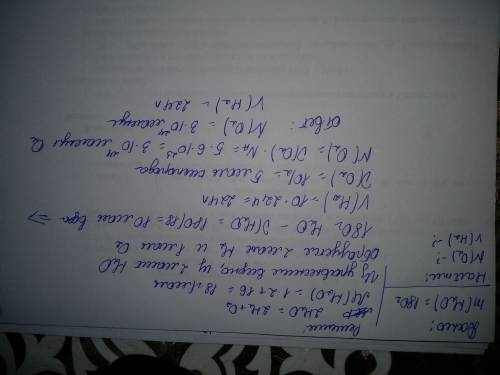 Дано:
m(H₂O) = 180г
Найти:
N(O₂) - ?
V(H₂) - ?
Решение:
2H₂O = 2H₂ + O₂
M(H₂O) = 1·2+16 = 18 г/моль
Из уравнения видно, из 2 молей H₂O
образуется 2 моля H₂ и 1 моль O₂
180г H₂O - ν(H₂O) = 180/18 = 10 моль воды ⇒
V(H₂) = 10·22,4 = 224л
ν(O₂) = 10/2 = 5 моль кислорода
N(O₂) = ν(O₂)·Nₐ = 5·6·10²³ = 3·10²⁴ молекул O₂
Ответ: N(O₂) = 3·10²⁴ молекул
V(H₂) = 224л